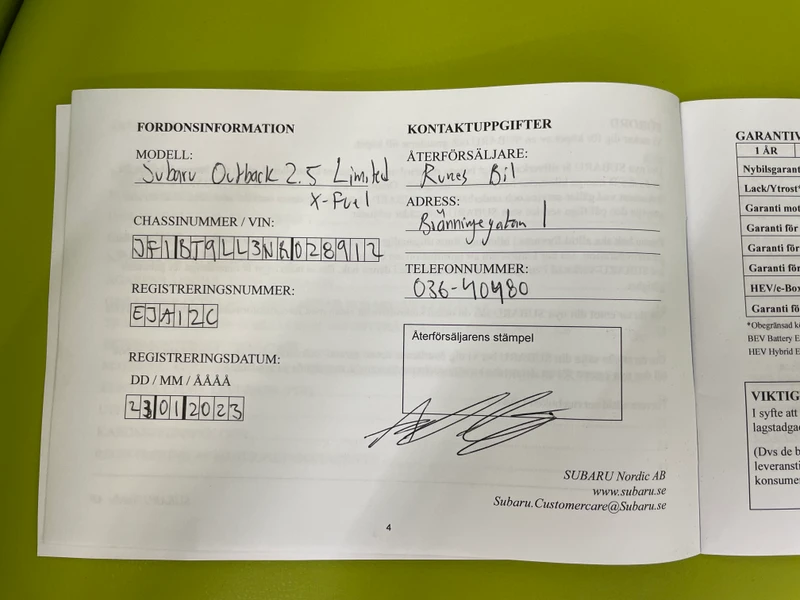 FORDONSINFORMATION
MODELL:
Subaru Outback 2.5 Limited
X-Fuel
CHASSINUMMER / VIN:
JF1BT9LL3NG028912
REGISTRERINGSNUMMER:
EJA12C
REGISTRERINGSDATUM:
DD / MM / ÅÅÅÅ
23012023
KONTAKTUPPGIFTER
ÅTERFÖRSÄLJARE:
Runes Bil
ADRESS:
Bränningegatan 1
TELEFONNUMMER:
036-40480
Återförsäljarens stämpel
SUBARU Nordic AB
www.subaru.se
Subaru.Customercare@Subaru.se
4
GARANTIV
1 ÅR
Nybilsgarant
Lack/Ytrost*
Garanti mot
Garanti för
Garanti för
Garanti för
HEV/e-Box
Garanti fö
*Obegränsad k
BEV Battery E
HEV Hybrid E
VIKTIG
I syfte att
lagstadgad
(Dvs de b
leveransti
konsume